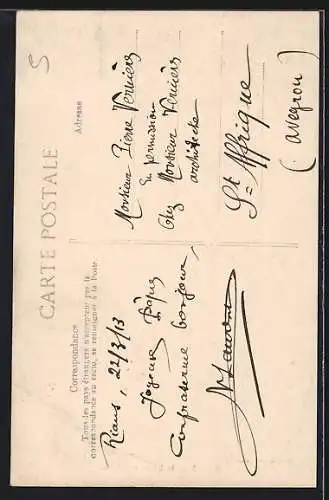 CARTE POSTALE
Correspondance
Tous les pays étrangers n'acceptent pas la
correspondance au recto, se renseigner à la Poste
Adresse
Rians, 22/3/13
Joyeuses Pâques
Confraternel bonjour
Monsieur Pierre Verniers
en permission
Chez Monsieur Verniers
architecte
St Affrique
(Aveyron)